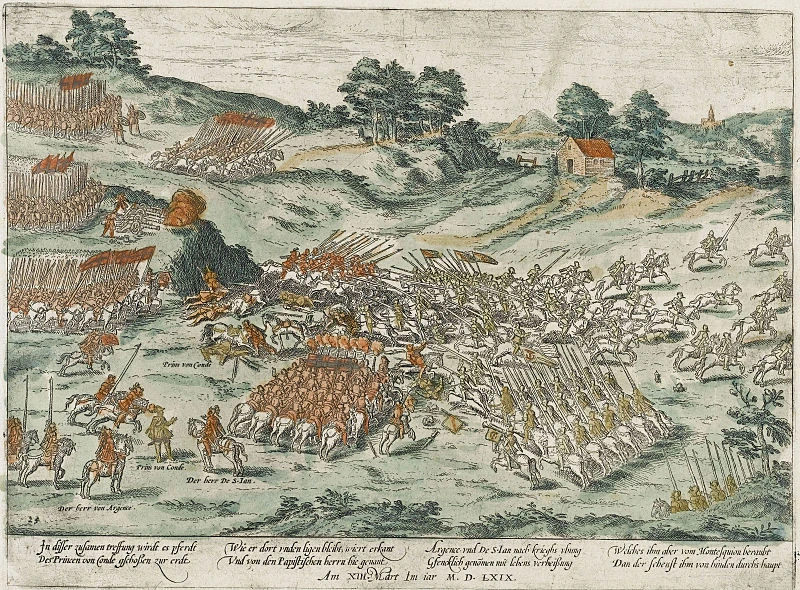 Prins von Conde
Prin van Conde
Der herr De S-Ian
Der herr von Argence
In disser zusamen treffung wirdt es pferdt
Des Princen von Conde gschossen zur erdt
Wie er dort vnden ligen bleibt, wiert erkant
Vnd von den Papistischen herrn hie genant
Argence vnd De S-Ian nach krieghs vbung
Gfencklich genomen mit lebens verheissung
Welches ihm aber vom Montesquion beraubt
Dan der schenst ihm von hinden durchs haupt
Am XIII Mart Im iar M. D. LXIX.